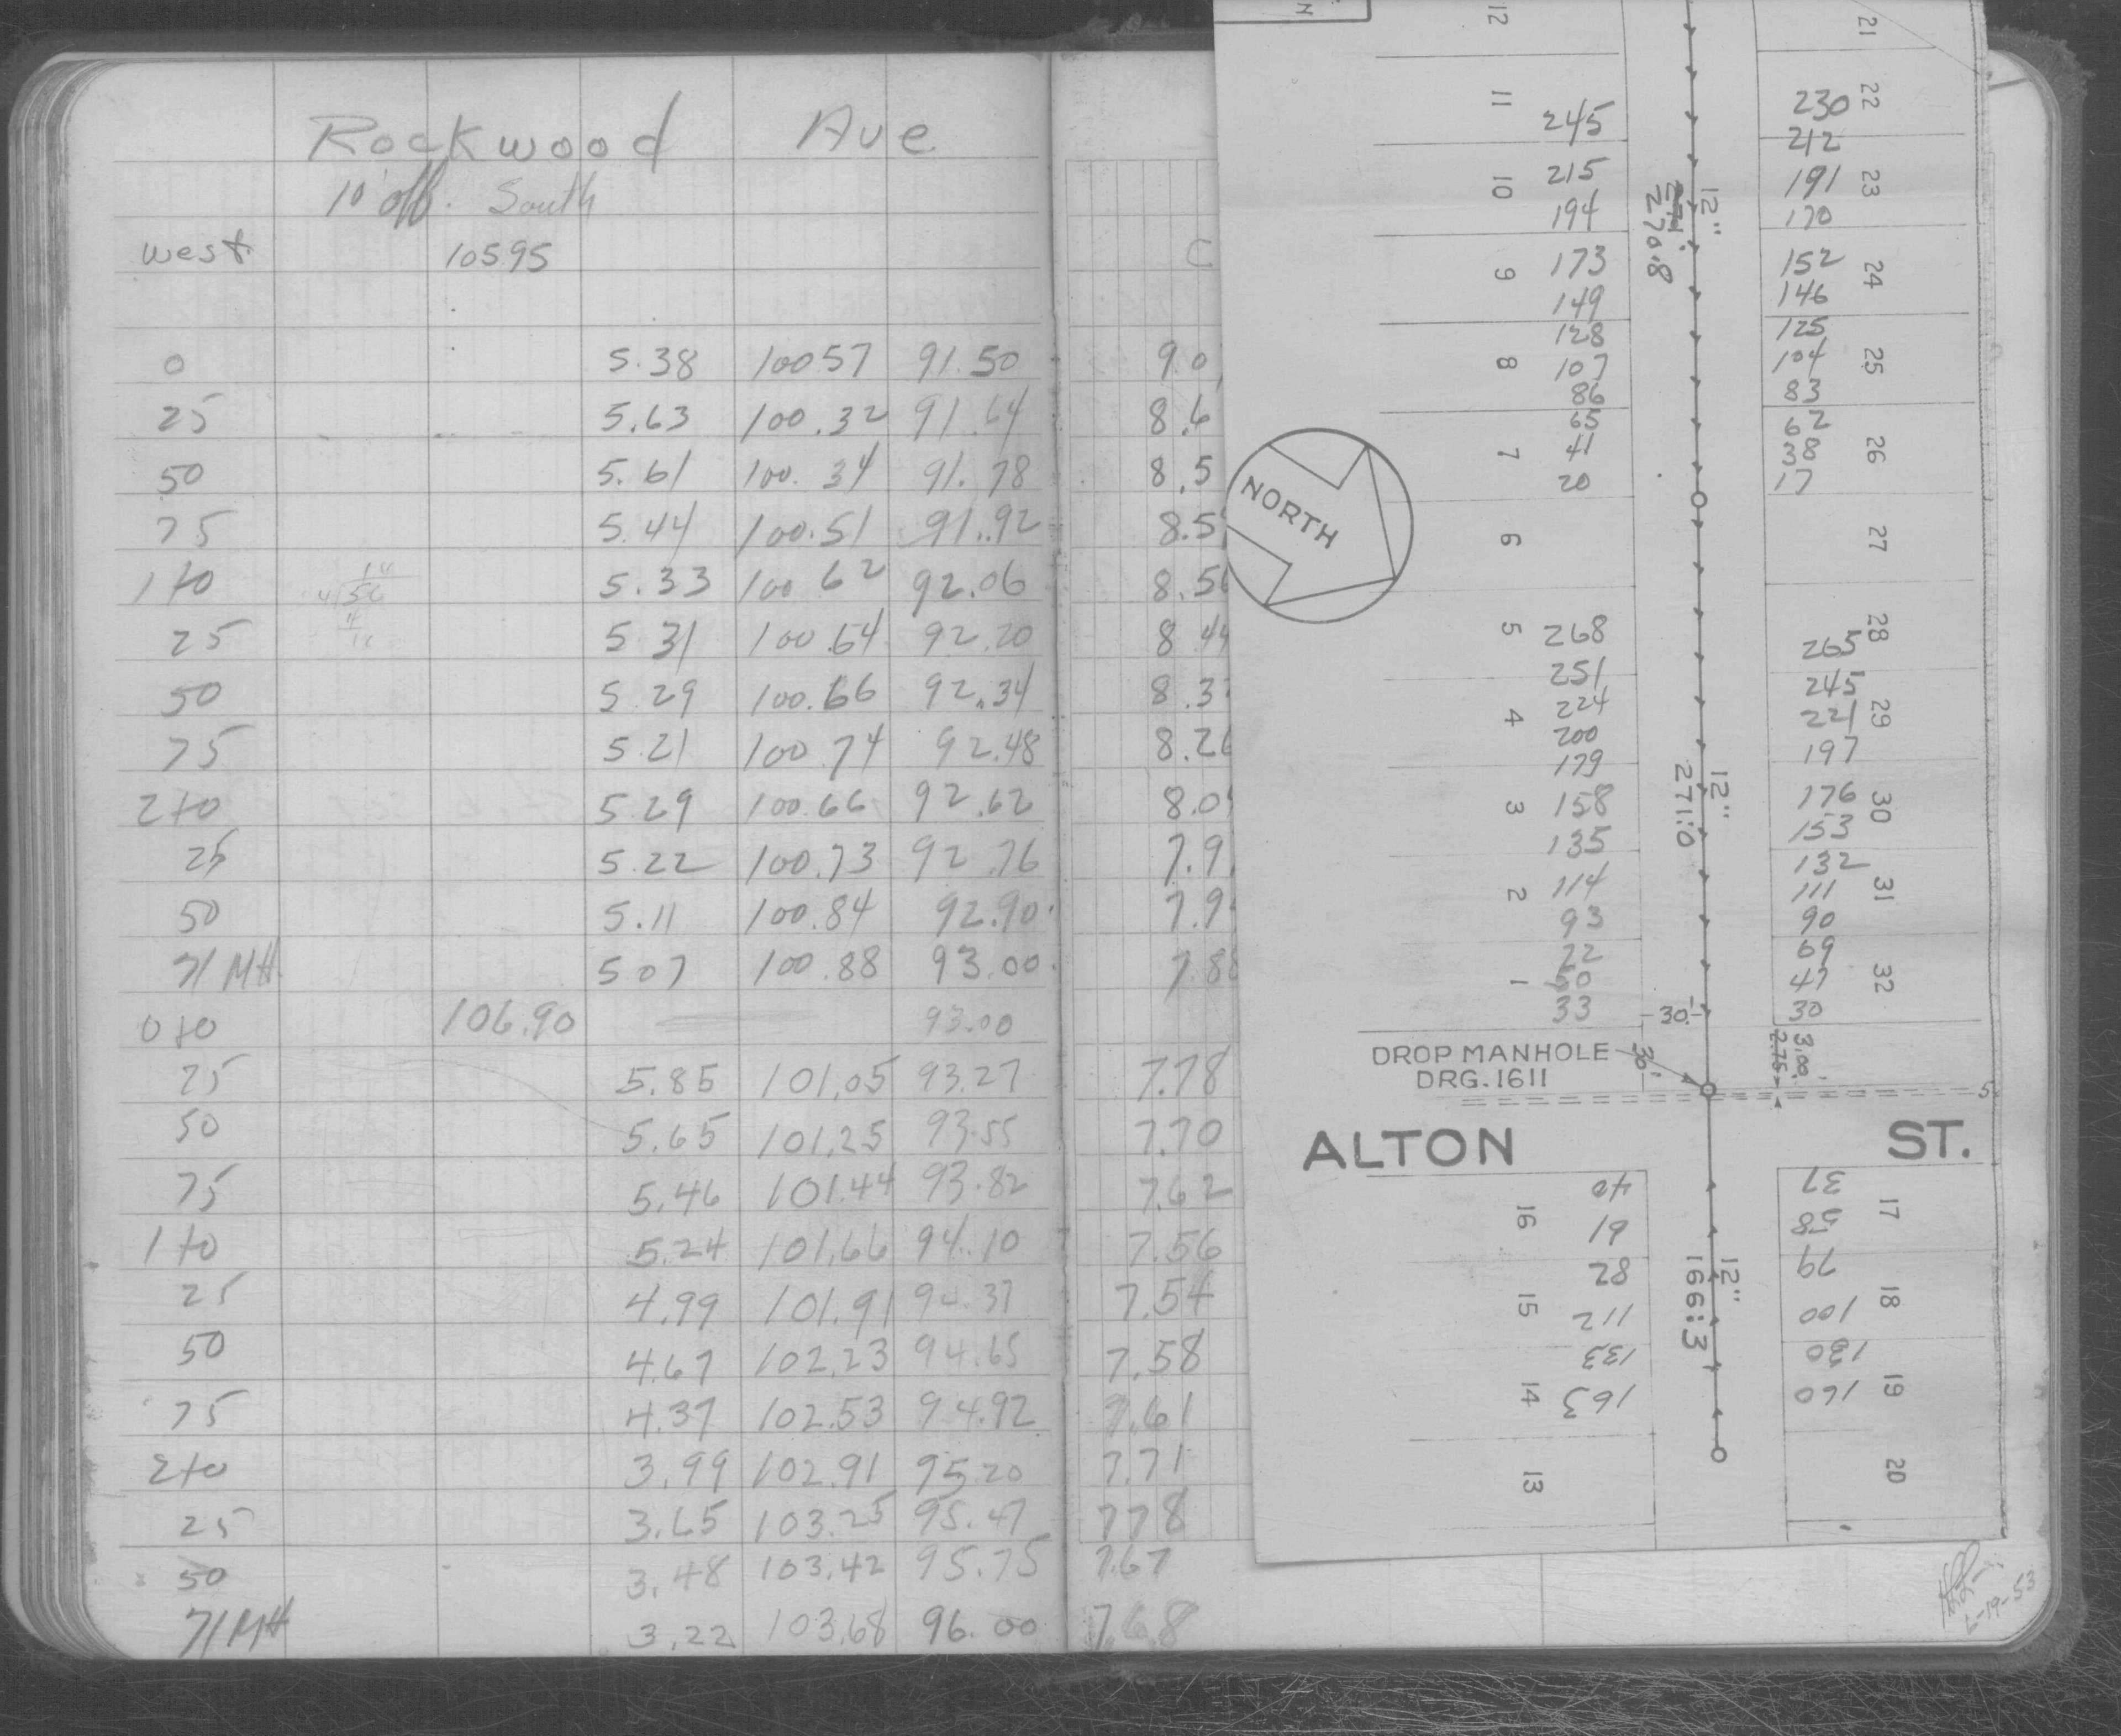 Rockwood Ave
10' off. South
West 10595 C
0 5.38 10057 91.50 9.0
25 5.63 100.32 91.64 8.6
50 5.61 100.34 91.78 8.5
75 5.44 100.51 91.92 8.5
1+0 5.33 100 62 92.06 8.5
25 5 31 100.64 92.20 8 44
50 5 29 100.66 92.34 8.3
75 5 21 100 74 92.48 8.26
2+0 5.29 100.66 92.62 8.0
25 5.22 100.73 92.76 7.9
50 5.11 100.84 92.90 7.9
71 MH 507 100.88 93.00 7.88
0+0 106.90 93.00
25 5.85 101.05 93.27 7.78
50 5.65 101.25 93.55 7.70
75 5.46 101.44 93.82 7.62
1+0 5.24 101.66 94.10 7.56
25 4.99 101.91 94.37 7.54
50 4.67 102.23 94.65 7.58
75 4.37 102.53 94.92 7.61
2+0 3.99 102.91 95.20 7.71
25 3.65 103.25 95.47 778
50 3.48 103.42 95.75 7.67
71 MH 3.22 103.68 96.00 7.68
14
4 56
4
N
12 21
11 245 230 22
212
10 215 191 23
194 170
12"
270.8
9 173 152 24
149 146
128 125
8 107 104 25
86 83
65 62
7 41 38 26
20 17
NORTH
6 27
5 268 265 28
251 245
4 224 221 29
200 197
179 176 30
3 158 153
135 132
12"
271:0
2 114 111 31
93 90
69
1 50 47 32
33 30
30'
DROP MANHOLE
DRG. 1611
30'
3.00
2.75
5
ALTON ST.
40 37 17
16 61 58
82 79
15 112 100 18
133 130
14 163 160 19
12"
166:3
13 20
-19-53